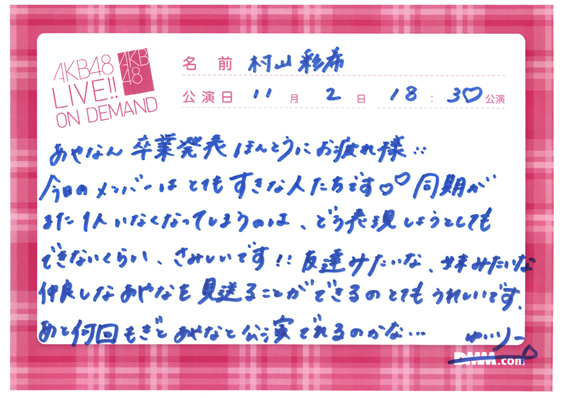 AKB48
LIVE!!
ON DEMAND
AKB
48
名前 村山彩希
公演日 11月2日 18:30公演
あやなん卒業発表ほんとうにお疲れ様‥
今日のメンバーはとてもすきな人たちです♡♡ 同期が
また1人いなくなってしまうのは、どう表現しようとしても
できないくらい、さみしいです!! 友達みたいな、妹みたいな
仲良しなあやなを見送ることができるのとてもうれしいです。
あと何回もぎとあやなと公演でれるのかな… ゆいりー
DMM.com